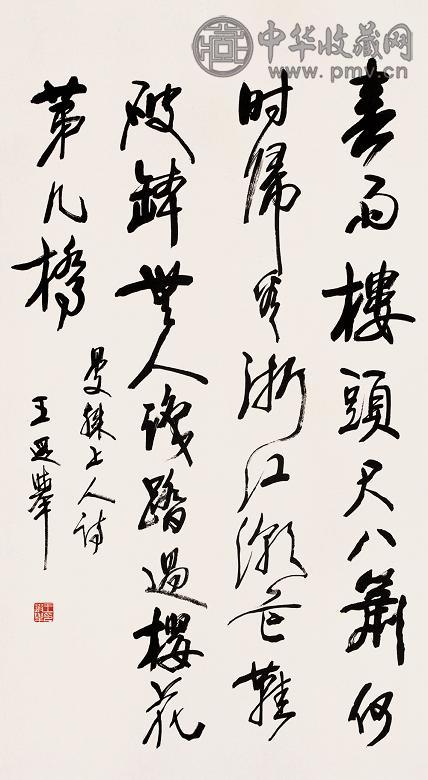 中华收藏网
www.pmv.cn
春雨樓頭尺八簫何
时歸看浙江潮芒鞋
破缽無人識踏過櫻花
第几橋
曼殊上人詩
王遐舉